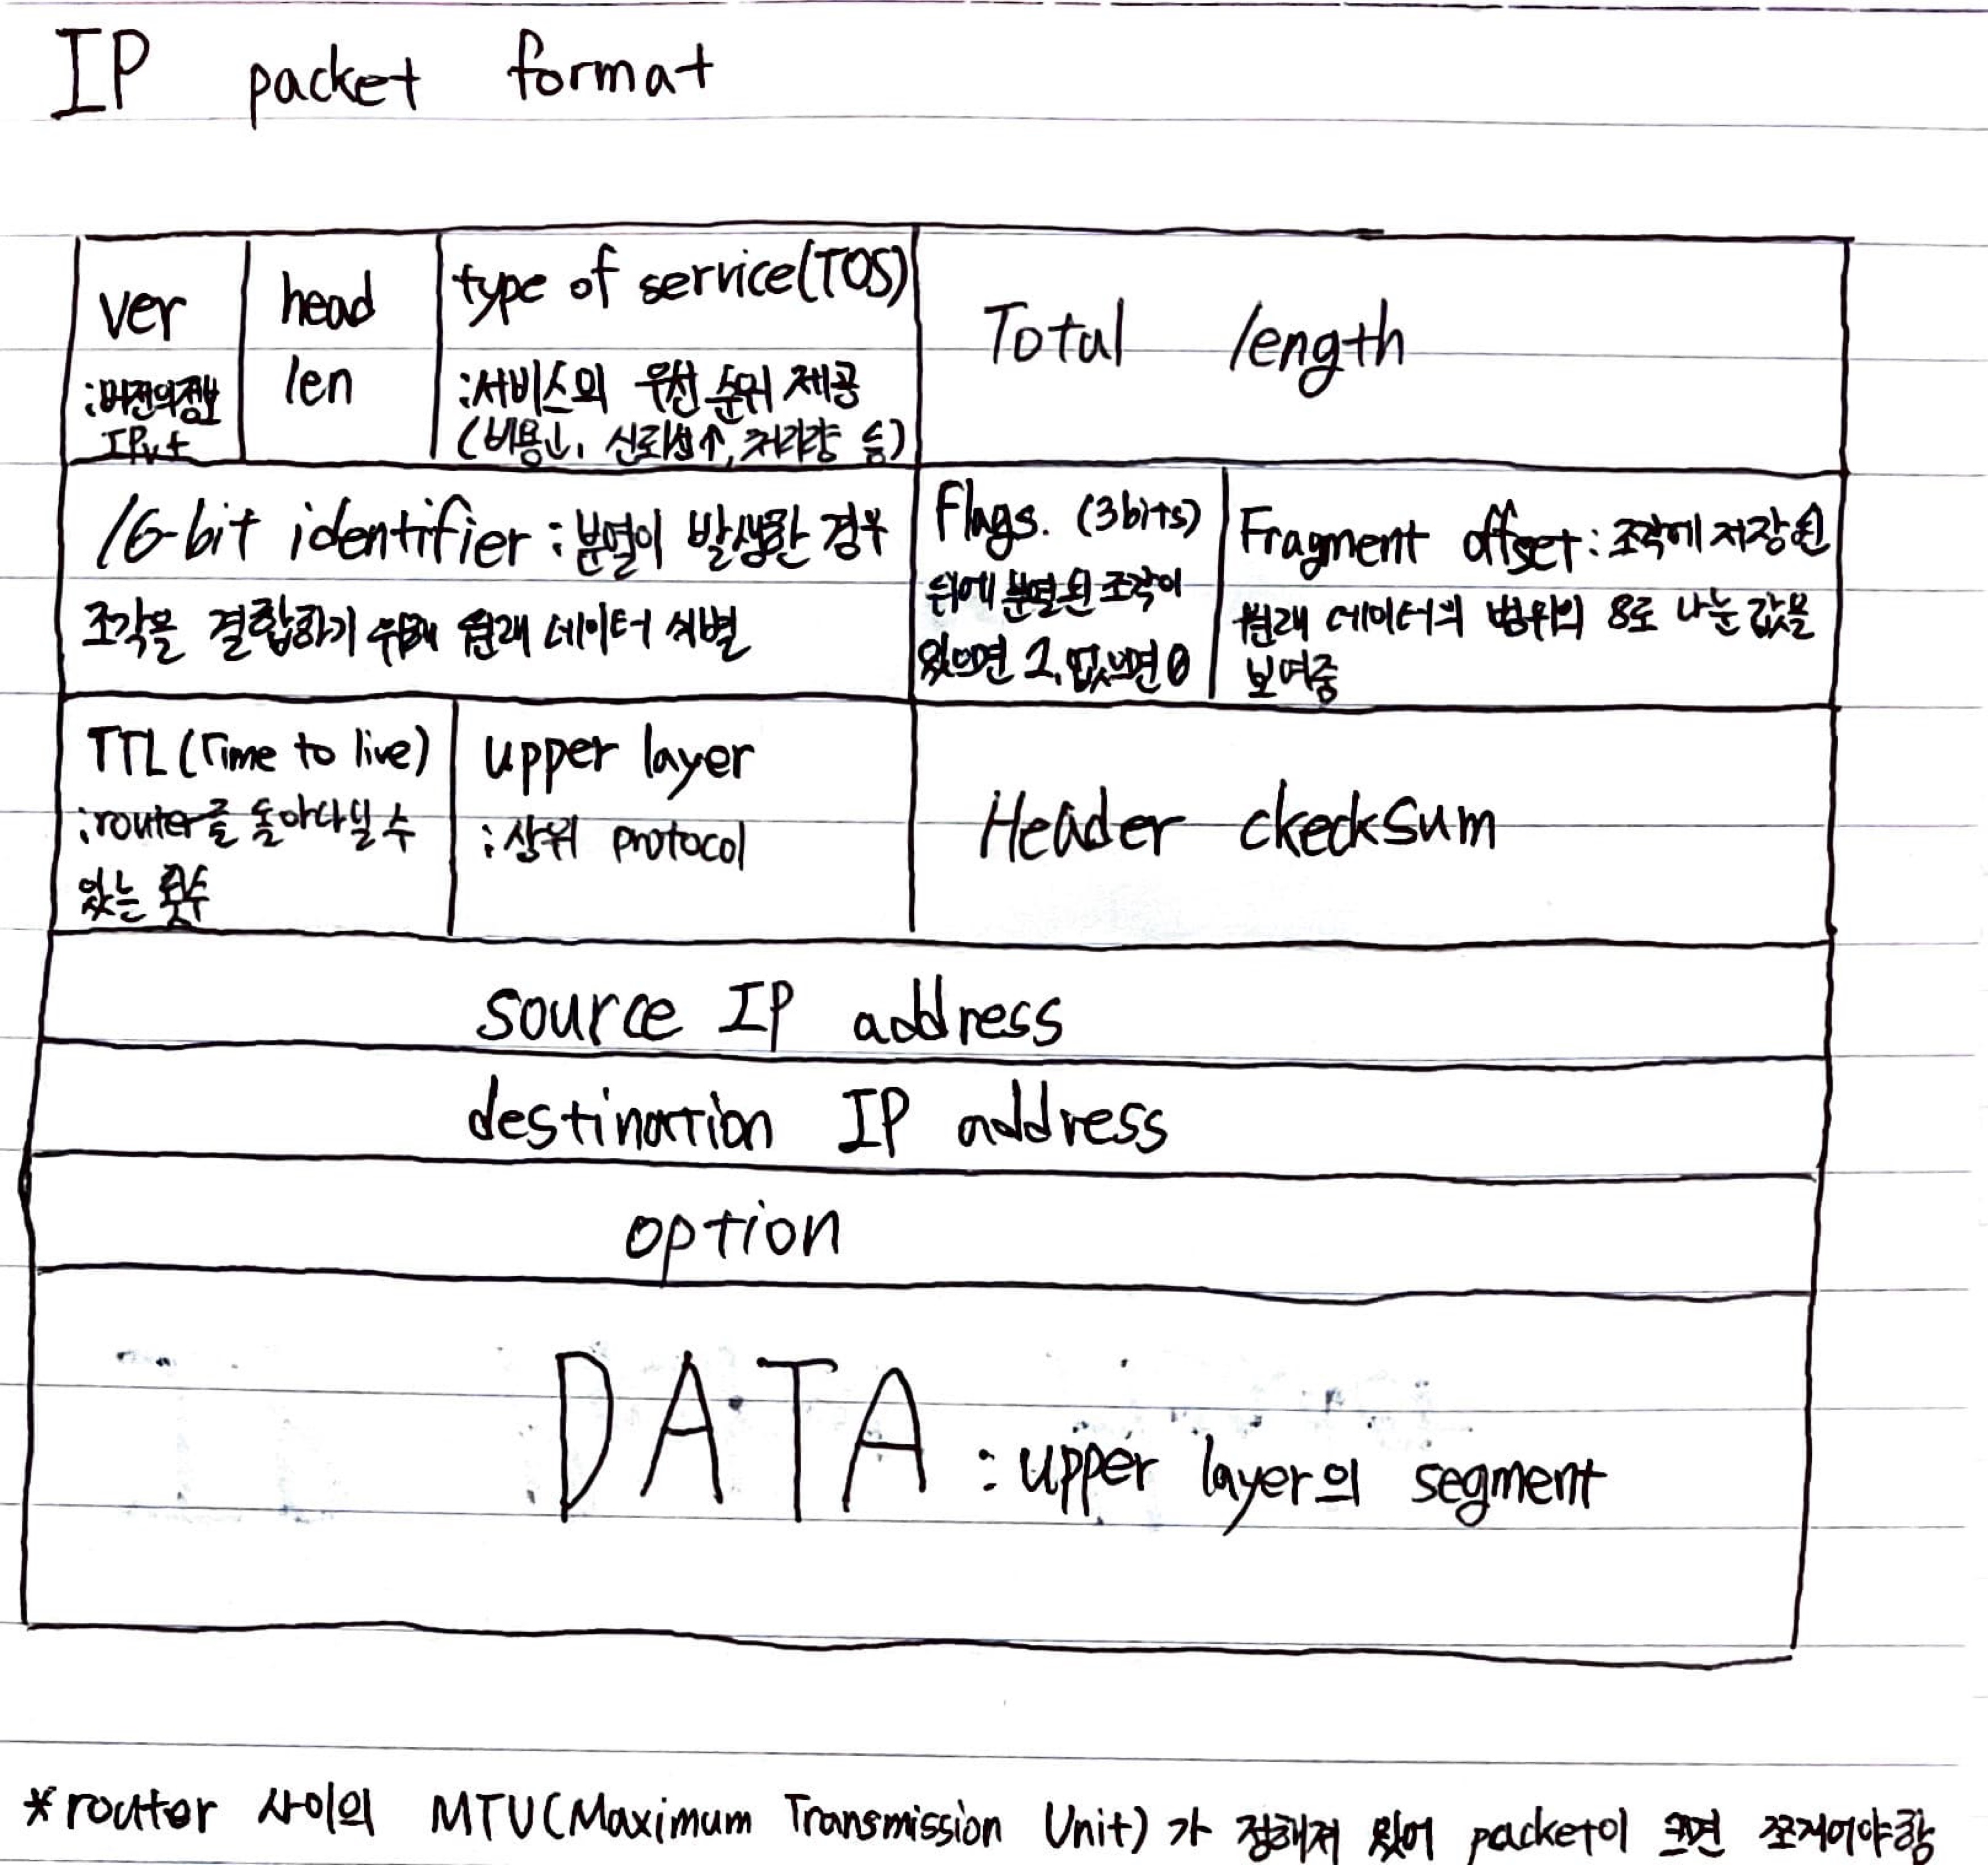 IP packet format
ver
:버전의정보
IPv4
head
len
type of service(TOS)
:서비스의 우선 순위 제공
(비용↓, 신뢰성↑, 처리량 등)
Total length
16-bit identifier : 분열이 발생한 경우
조각을 결합하기 위해 원래 데이터 식별
Flags. (3bits)
뒤에 분열된 조각이
있으면 1, 없으면 0
Fragment offset : 조각에 저장된
원래 데이터의 범위의 8로 나눈 값을
보여줌
TTL (Time to live)
:router를 돌아다닐 수
있는 횟수
upper layer
: 상위 protocol
Header ckecksum
source IP address
destination IP address
option
DATA : upper layer의 segment
*router 사이의 MTU(Maximum Transmission Unit) 가 정해져 있어 packet이 크면 쪼개어야함